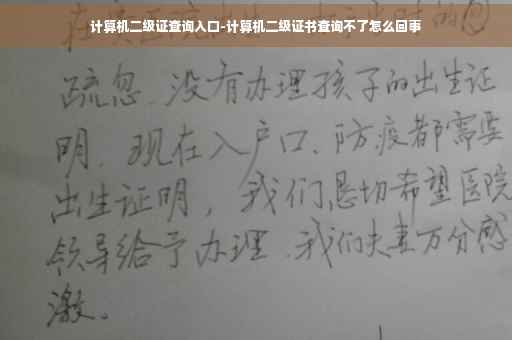 计算机二级证查询入口-计算机二级证书查询不了怎么回事
疏忽、没有办理孩子的出生证
明. 现在入户口、防疫都需要
出生证明，我们恳切希望医院
领导给予办理、我们夫妻万分感
激。